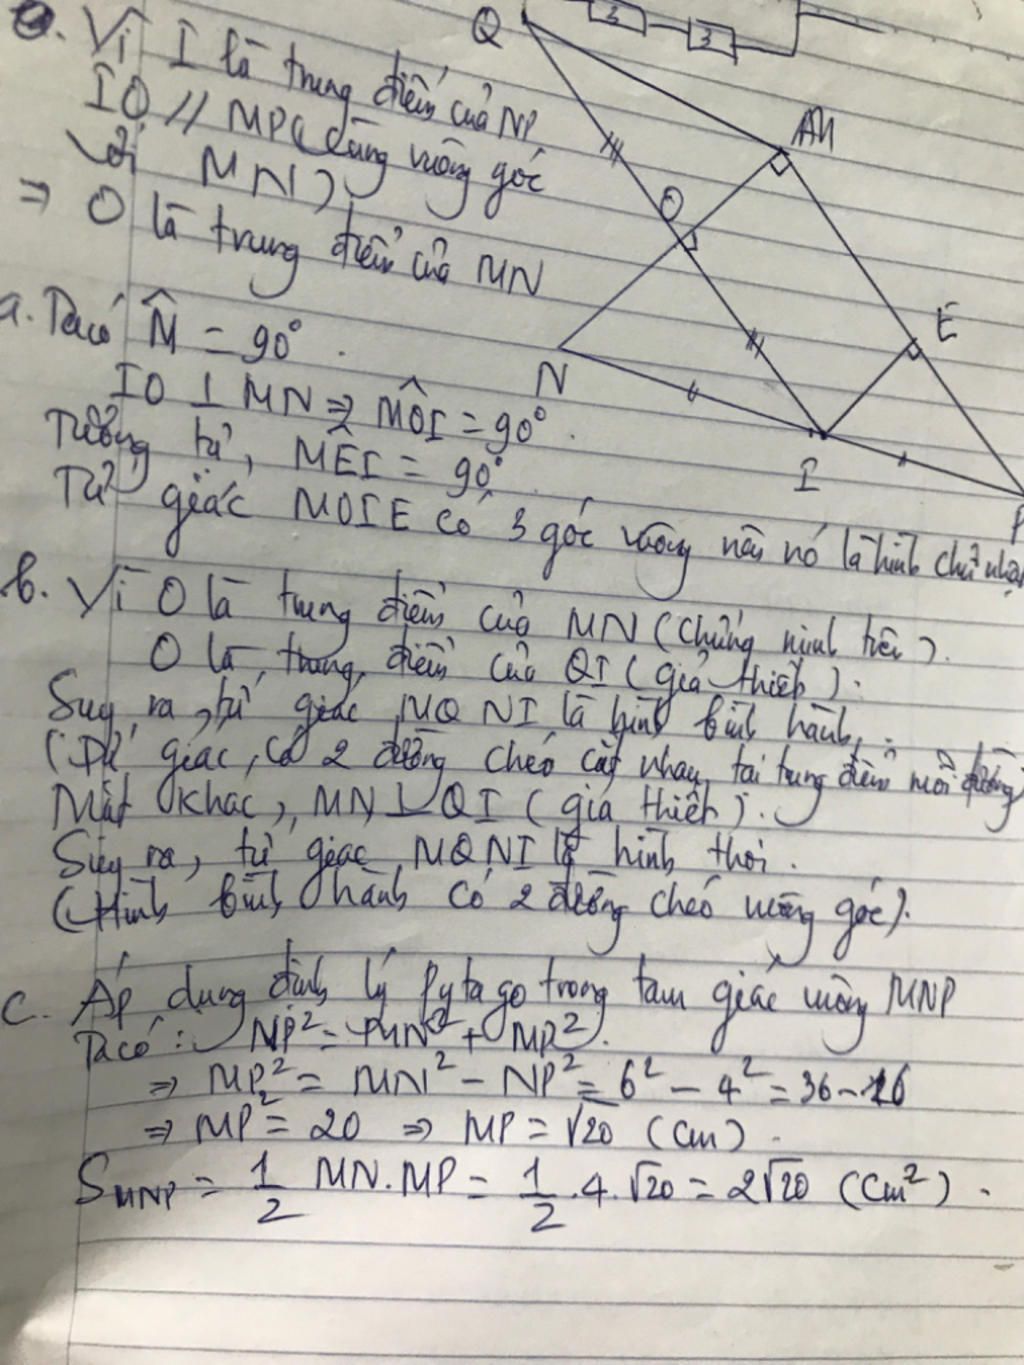 a. Vì I là trung điểm của NP
IO // MP (cùng vuông góc
với MN)
⇒ O là trung điểm của MN
a. Ta có M̂ = 90°.
IO ⊥ MN ⇒ MÔI = 90°.
Tương tự, MÊI = 90°
Tứ giác MOIE có 3 góc vuông nên nó là hình chữ nhật
b. Vì O là trung điểm của MN (chứng minh trên).
O là trung điểm của QI (giả thiết).
Suy ra, tứ giác MQNI là hình bình hành.
(Tứ giác có 2 đường chéo cắt nhau tại trung điểm mỗi đường)
Mặt khác, MN ⊥ QI (giả thiết).
Suy ra, tứ giác MQNI là hình thoi.
(Hình bình hành có 2 đường chéo vuông góc).
c. Áp dụng định lý Pytago trong tam giác vuông MNP
Ta có: NP² = MN² + MP².
⇒ MP² = MN² - NP² = 6² - 4² = 36 - 16
⇒ MP² = 20 ⇒ MP = √20 (cm).
S_MNP = 1/2 MN.MP = 1/2 .4.√20 = 2√20 (cm²).
3
3
Q
M
O
E
N
I
P